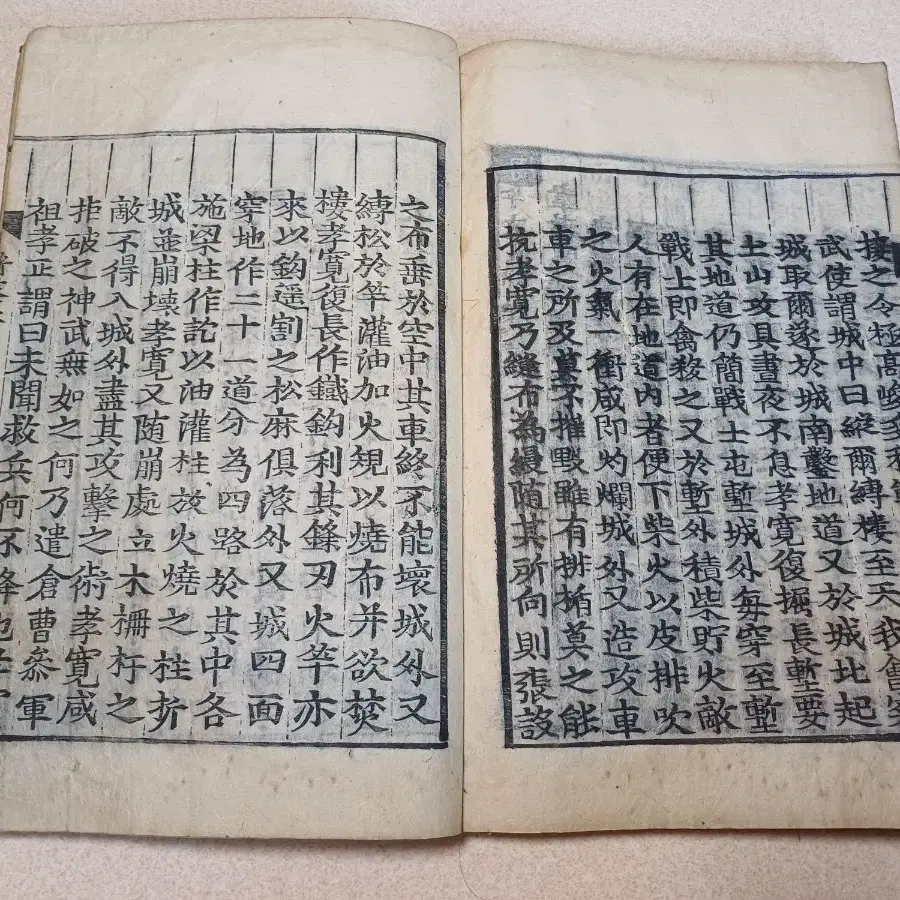 接之令極高峻多
武使謂城中曰縱爾縛樓至天我會穿
城取爾遂於城南鑿地道又於城北起
土山攻具晝夜不息孝寬復掘長塹要
其地道仍簡戰士屯塹城外每穿至塹
戰上即禽殺之又於塹外積柴貯火敵
人有在地道內者便下柴火以皮排吹
之火氣一衝咸即灼爛城外又造攻車
車之所及莫不摧毀雖有排楯莫之能
抗孝寬乃縫布為縵随其所向則張設
之布垂於空中其車終不能壞城外又
縛松於竿灌油加火規以燒布并欲焚
樓孝寬復長作鐵鈎利其鋒刃火竿亦
來以鈎遥割之松麻俱落外又城四面
穿地作二十一道分為四路於其中各
施梁柱作訖以油灌柱放火燒之柱折
城並崩壞孝寬又随崩處立木柵扞之
敵不得入城外盡其攻擊之術孝寬咸
拒破之神武無如之何乃遣倉曹叅軍
祖孝正謂曰未聞救兵何不降也